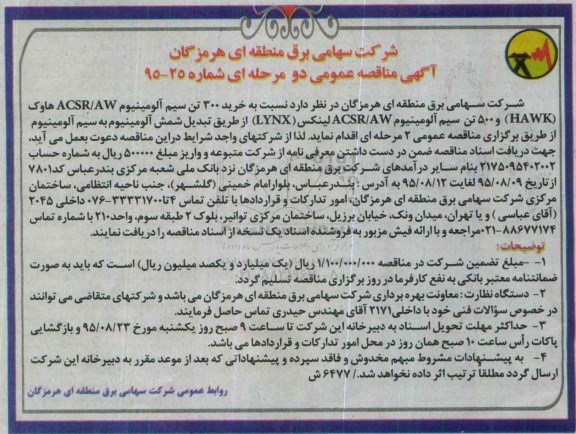 شرکت سهامی برق منطقه ای هرمزگان
آگهی مناقصه عمومی دو مرحله ای شماره ۲۵-۹۵
شرکت سهامی برق منطقه ای هرمزگان در نظر دارد نسبت به خرید ۳۰۰ تن سیم آلومینیوم ACSR/AW هاوک
(HAWK) و ۵۰۰ تن سیم آلومینیوم ACSR/AW لینکس (LYNX) از طریق تبدیل شمش آلومینیوم به سیم آلومینیوم
از طریق برگزاری مناقصه عمومی ۲ مرحله ای اقدام نماید. لذا از شرکتهای واجد شرایط در این مناقصه دعوت بعمل می آید،
جهت دریافت اسناد مناقصه ضمن در دست داشتن معرفی نامه از شرکت متبوعه و واریز مبلغ ۵۰۰۰۰۰ ریال به شماره حساب
۲۱۷۵۰۹۵۴۰۲۰۰۲ بنام سایر درآمدهای شرکت برق منطقه ای هرمزگان نزد بانک ملی شعبه مرکزی بندرعباس کد ۷۸۰۱
از تاریخ ۹۵/۰۸/۰۹ لغایت ۹۵/۰۸/۱۲ به آدرس: بندرعباس، بلوارامام خمینی (گلشهر)، جنب ناحیه انتظامی، ساختمان
مرکزی شرکت برق منطقه ای هرمزگان، امور تدارکات و قراردادها با تلفن تماس ۴تا۳۳۳۳۱۷۰۰-۰۷۶ داخلی ۲۰۴۵
(آقای عباسی) و یا تهران، میدان ونک، خیابان برزیل، ساختمان مرکزی توانیر، بلوک ۲ طبقه سوم، واحد ۲۱۰ با شماره تماس
۰۲۱-۸۸۶۷۷۱۷۴ مراجعه و با ارائه فیش مزبور به فروشنده اسناد یک نسخه از اسناد مناقصه را دریافت نمایند.
توضیحات:
۱- -مبلغ تضمین شرکت در مناقصه ۱/۱۰۰/۰۰۰/۰۰۰ ریال (یک میلیارد و یکصد میلیون ریال) است که باید به صورت
ضمانتنامه معتبر بانکی به نفع کارفرما در روز برگزاری مناقصه تسلیم گردد.
۲- دستگاه نظارت: معاونت بهره برداری شرکت سهامی برق منطقه ای هرمزگان می باشد و شرکتهای متقاضی می توانند
در خصوص سؤالات فنی خود با داخلی ۲۱۷۱ آقای مهندس حیدری تماس حاصل فرمایند.
۳- حداکثر مهلت تحویل اسناد به دبیرخانه این شرکت تا ساعت ۹ صبح روز یکشنبه مورخ ۹۵/۰۸/۲۳ و بازگشایی
پاکات رأس ساعت ۱۰ صبح همان روز در محل امور تدارکات و قراردادها می باشد.
۴- به پیشنهادات مشروط مبهم مخدوش و فاقد سپرده و پیشنهاداتی که بعد از موعد مقرر به دبیرخانه این شرکت
ارسال گردد مطلقاً ترتیب اثر داده نخواهد شد./ ۶۴۷۷ ش
روابط عمومی شرکت سهامی برق منطقه ای هرمزگان